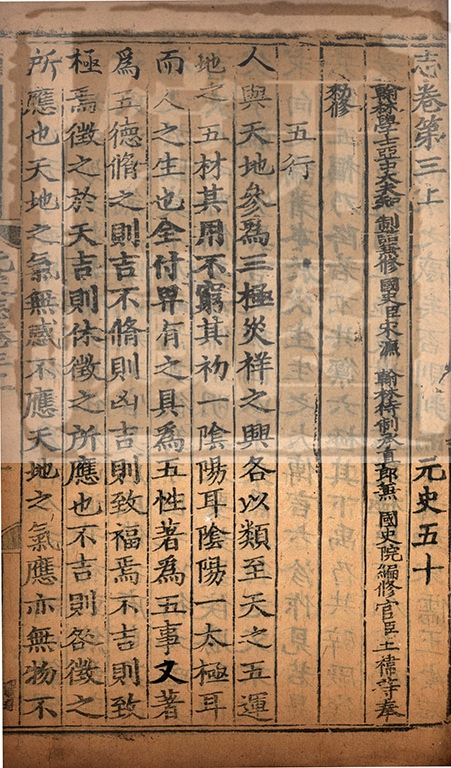 志卷第三上 元史五十
翰林學士亞中大夫知制誥兼修國史臣宋濂 翰林待制承直郎兼國史院編修官臣王禕等奉
勑修
五行
人與天地參爲三極災祥之興各以類至天之五運
地之五材其用不窮其初一陰陽耳陰陽一太極耳
而人之生也全付畀有之具爲五性著爲五事又著
爲五德脩之則吉不脩則凶吉則致福焉不吉則致
極焉徵之於天吉則休徵之所應也不吉則咎徵之
所應也天地之氣無感不應天地之氣應亦無物不